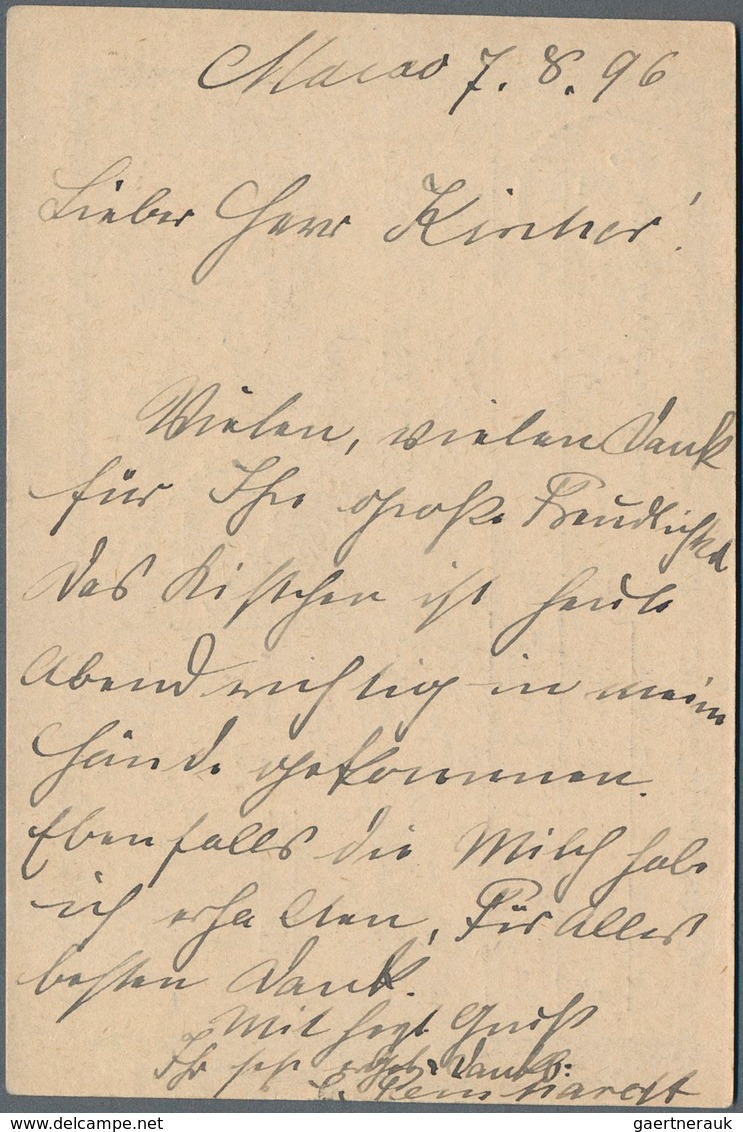 Macao 7. 8. 96
Lieber Herr Kircher!
Vielen, vielen Dank
für Ihre große Freundlichkeit
Das Kistchen ist heute
Abend richtig in meine
Hände gekommen.
Ebenfalls die Milch habe
ich erhalten, Für Alles
besten Dank.
Mit herzl. Gruß
Ihr sehr ergeb. dankb:
gaertnerauk @ delcampe.net